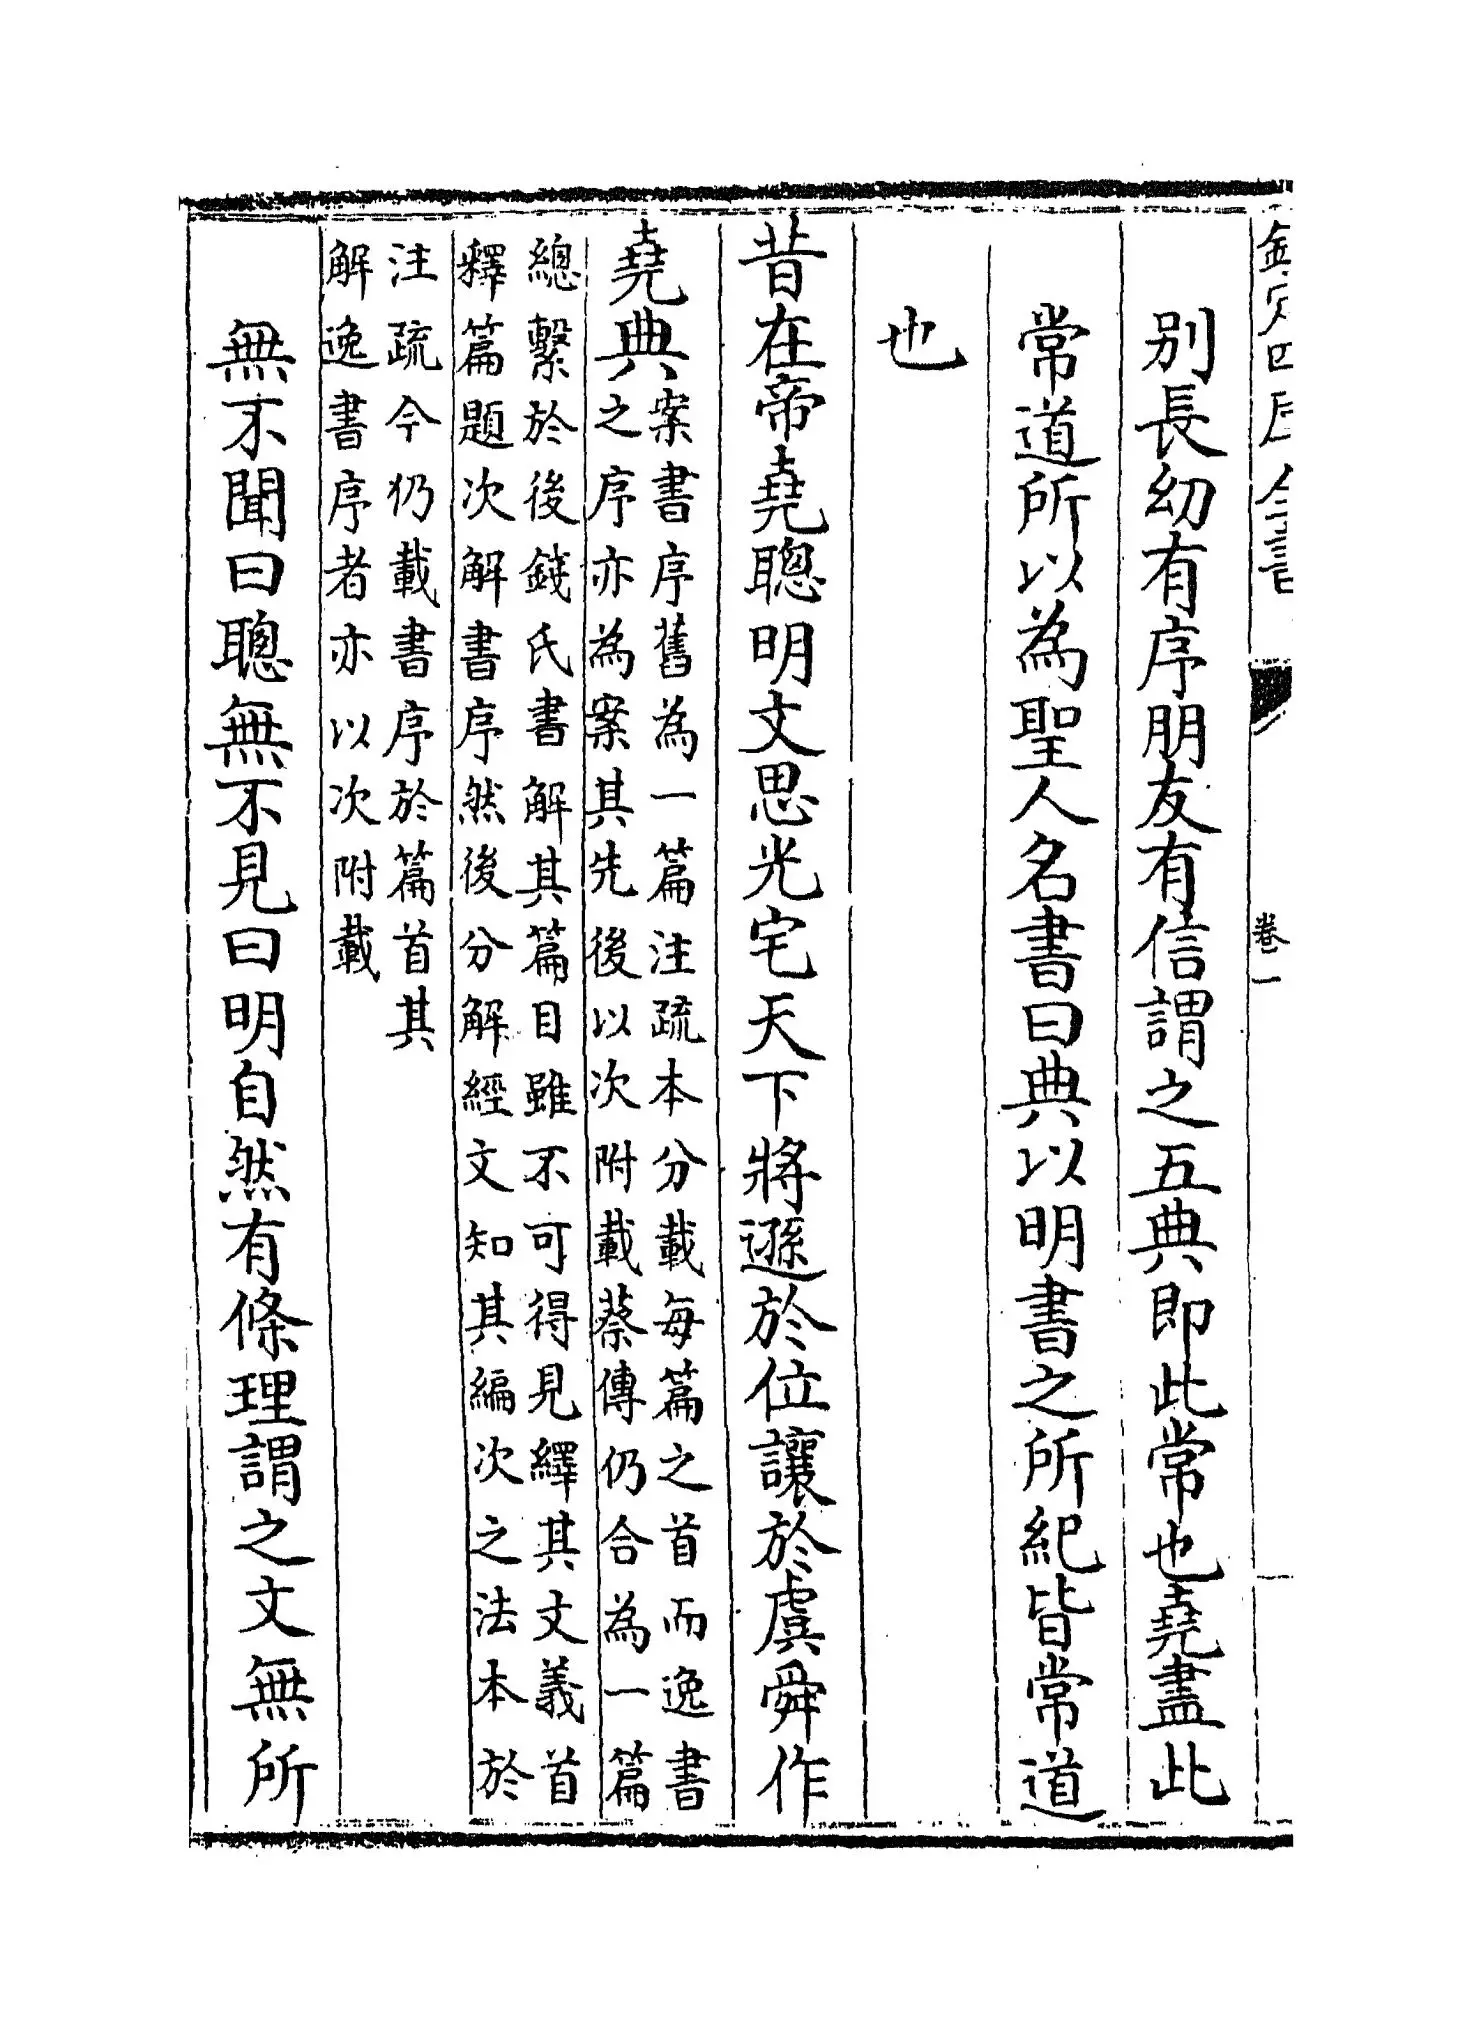 欽定四庫全書
卷一
别長幼有序朋友有信謂之五典即此常也堯盡此
常道所以為聖人名書曰典以明書之所紀皆常道
也
昔在帝堯聰明文思光宅天下將遜於位讓於虞舜作
堯典
案書序舊為一篇注疏本分載每篇之首而逸書
之序亦為案其先後以次附載蔡傳仍合為一篇
總繫於後錢氏書解其篇目雖不可得見繹其文義首
釋篇題次解書序然後分解經文知其編次之法本於
注疏今仍載書序於篇首其
解逸書序者亦以次附載
無不聞曰聰無不見曰明自然有條理謂之文無所